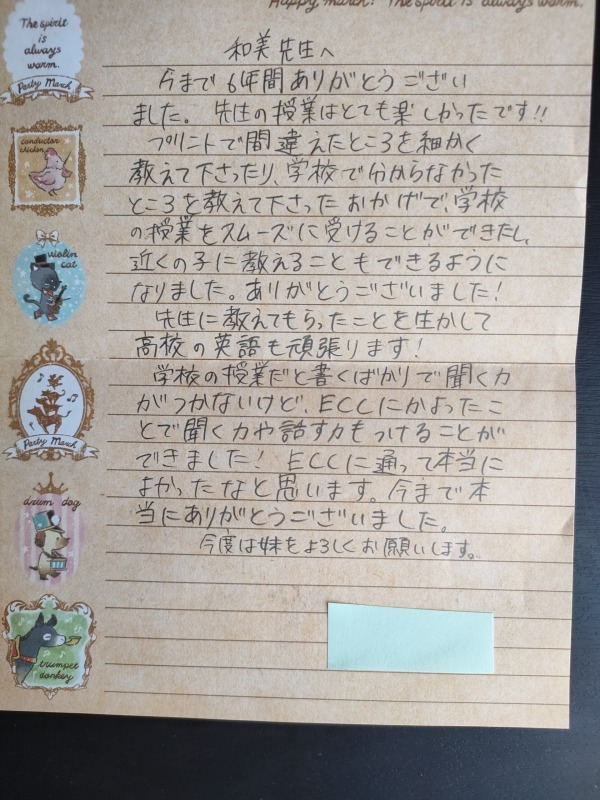 Happy march! The spirit is always warm.
The spirit
is
always
warm.
Party March
conductor
chicken
violin
cat
Party March
drum dog
trumpet
donkey
和美先生へ
今まで6年間ありがとうござい
ました。先生の授業はとても楽しかったです!!
プリントで間違えたところを細かく
教えて下さったり、学校で分からなかった
ところを教えて下さったおかげで、学校
の授業をスムーズに受けることができたし、
近くの子に教えることもできるように
なりました。ありがとうございました!
先生に教えてもらったことを生かして
高校の英語も頑張ります!
学校の授業だと書くばかりで聞く力
がつかないけど、ECCにかよったこ
とで聞く力や話す力もつけることが
できました! ECCに通って本当に
よかったなと思います。今まで本
当にありがとうございました。
今度は妹をよろしくお願いします。